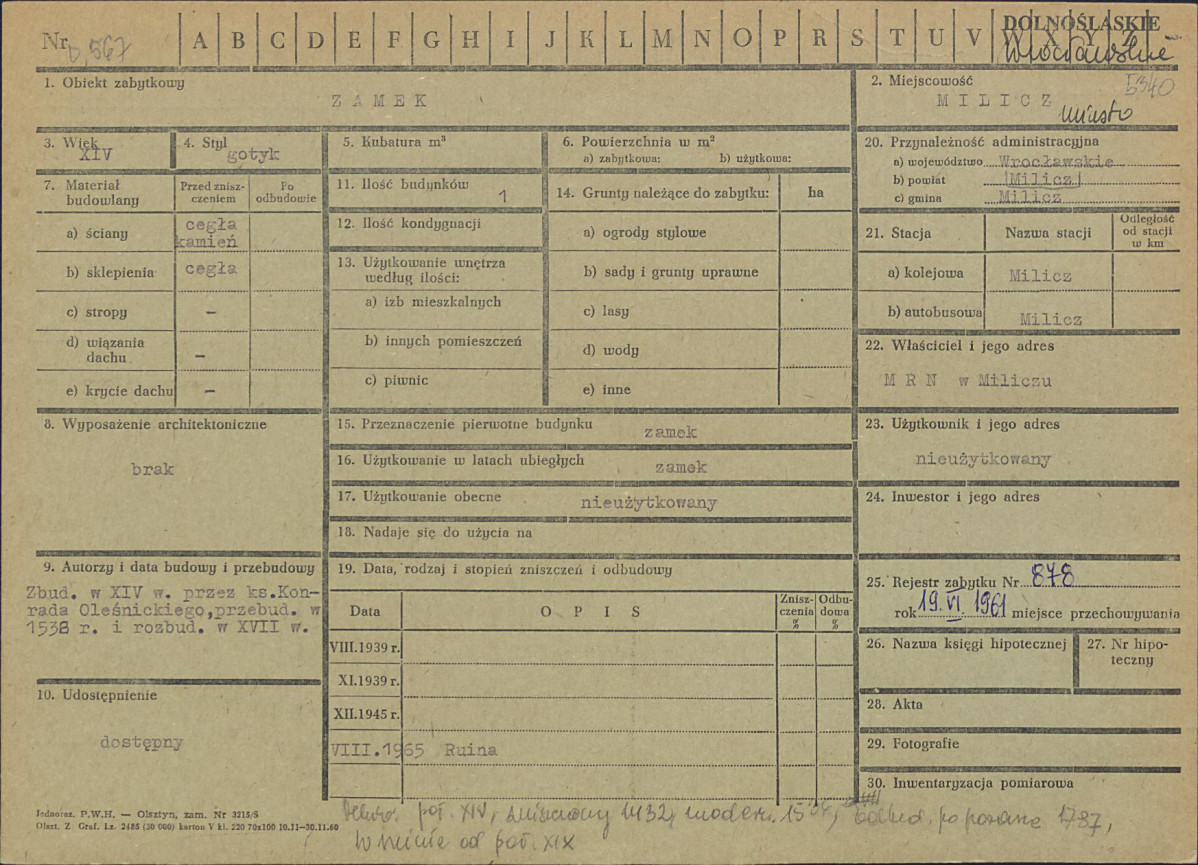 Nr
A B C D E F G H I J K L M N O P R S T U V W X Y Z
DOLNOŚLĄSKIE
1. Obiekt zabytkowy
ZAMEK
2. Miejscowość
5340
MILICZ
miasto
3. Wiek
XIV
4. Styl
gotyk
5. Kubatura m³
6. Powierzchnia w m²
a) zabytkowa: b) użytkowa:
20. Przynależność administracyjna
a) województwo Wrocławskie
b) powiat Milicz
c) gmina Milicz
7. Materiał budowlany
Przed zniszczeniem
Po odbudowie
11. Ilość budynków
1
14. Grunty należące do zabytku:
ha
a) ściany
cegła
kamień
12. Ilość kondygnacji
a) ogrody stylowe
21. Stacja
Nazwa stacji
Odległość od stacji w km
b) sklepienia
cegła
13. Użytkowanie wnętrza
według ilości:
b) sady i grunty uprawne
a) kolejowa
Milicz
c) stropy
–
a) izb mieszkalnych
c) lasy
b) autobusowa
Milicz
d) wiązania
dachu
–
b) innych pomieszczeń
d) wody
22. Właściciel i jego adres
MRN w Miliczu
e) krycie dachu
–
c) piwnic
e) inne
8. Wyposażenie architektoniczne
brak
15. Przeznaczenie pierwotne budynku
zamek
23. Użytkownik i jego adres
nieużytkowany
16. Użytkowanie w latach ubiegłych
zamek
17. Użytkowanie obecne
nieużytkowany
24. Inwestor i jego adres
18. Nadaje się do użycia na
9. Autorzy i data budowy i przebudowy
Zbud. w XIV w. przez ks.Kon-
rada Oleśnickiego,przebud. w
1538 r. i rozbud. w XVII w.
19. Data, rodzaj i stopień zniszczeń i odbudowy
Data
OPIS
Zniszczenia %
Odbudowa %
25. Rejestr zabytku Nr 878
rok 19.VI. 1961 miejsce przechowywania
VIII.1939 r.
26. Nazwa księgi hipotecznej
27. Nr hipo-
teczny
XI.1939 r.
10. Udostępnienie
dostępny
XII.1945 r.
28. Akta
VIII.1965 Ruina
29. Fotografie
30. Inwentaryzacja pomiarowa
Jednoraz. P.W.H. — Olsztyn, zam. Nr 3215/S
Olszt. Z. Graf. Lz. 2485 (30 000) karton V kl. 220 70x100 10.11—30.11.60
poł. XIV,
odbud. po pożarze 1797,
w ruinie od poł. XIX